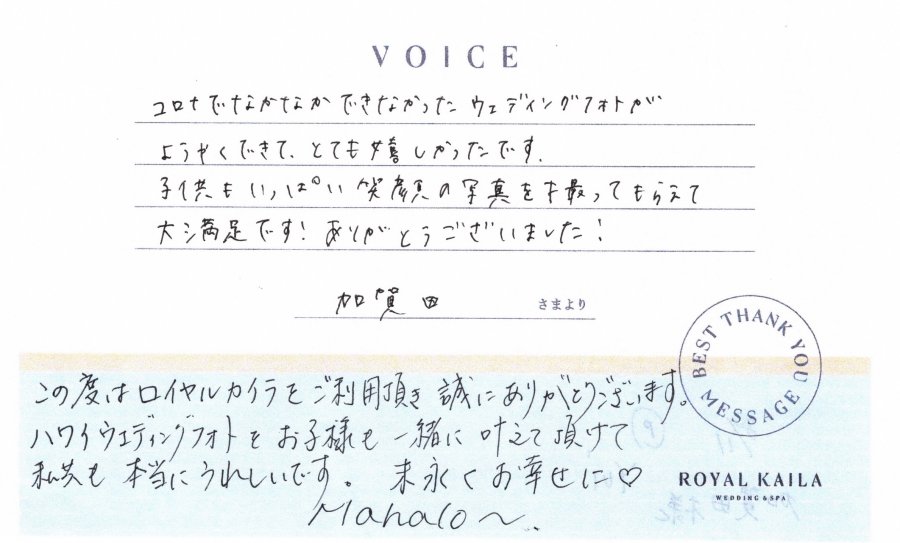 VOICE
コロナでなかなかできなかったウェディングフォトが
ようやくできて、とても嬉しかったです。
子供もいっぱい笑顔の写真を撮ってもらえて
大満足です！ありがとうございました！
加賀田 さまより
BEST THANK YOU MESSAGE
この度はロイヤルカイラをご利用頂き誠にありがとうございます。
ハワイウエディングフォトをお子様も一緒に叶えて頂けて
私共も本当にうれしいです。末永くお幸せに♡
Mahalo〜
ROYAL KAILA
WEDDING & SPA